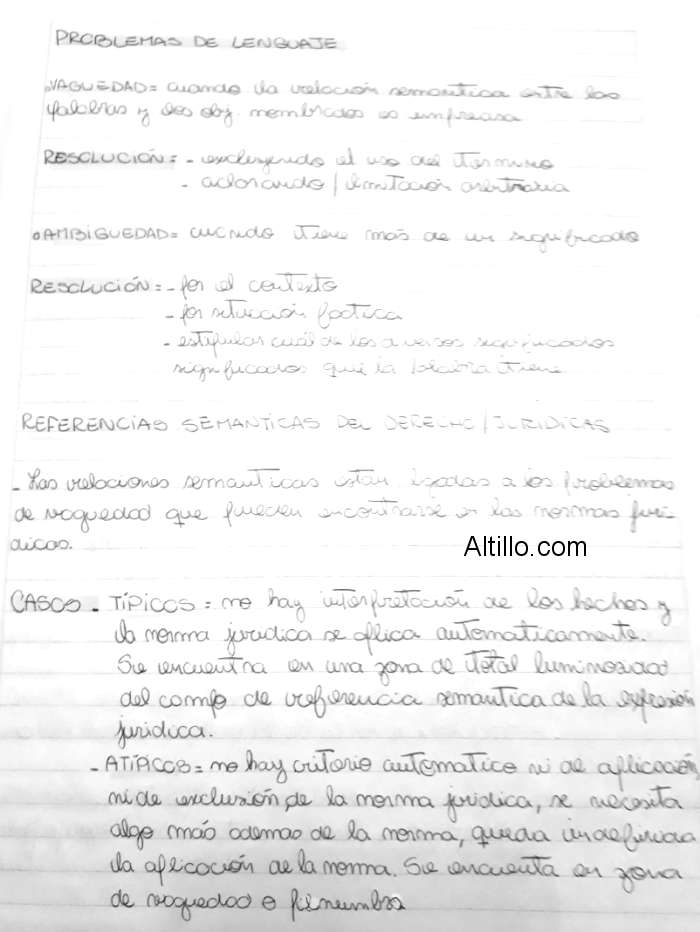 PROBLEMAS DE LENGUAJE
.VAGUEDAD= cuando la relación semantica entre las
palabras y los obj. nombrados es imprecisa
RESOLUCIÓN: - excluyendo el uso del término
- aclarando / limitación arbitraria
.AMBIGUEDAD= cuando tiene más de un significado
RESOLUCIÓN: - por el contexto
- por situación fáctica
- estipular cuál de los diversos significados
significados que la palabra tiene.
REFERENCIAS SEMANTICAS DEL DERECHO / JURIDICAS
- Las relaciones semanticas estan ligadas a los problemas
de vaguedad que pueden encontrarse en las normas juri-
dicas.
Altillo.com
CASOS - TÍPICOS = no hay interpretación de los hechos y
la norma juridica se aplica automaticamente.
Se encuentra en una zona de total luminosidad
del campo de referencia semantica de la expresión
juridica.
- ATIPICOS = no hay criterio automatico ni de aplicación
ni de exclusión, de la norma juridica, se necesita
algo más ademas de la norma, queda indefinida
la aplicación de la norma. Se encuenta en zona
de vaguedad o penumbra